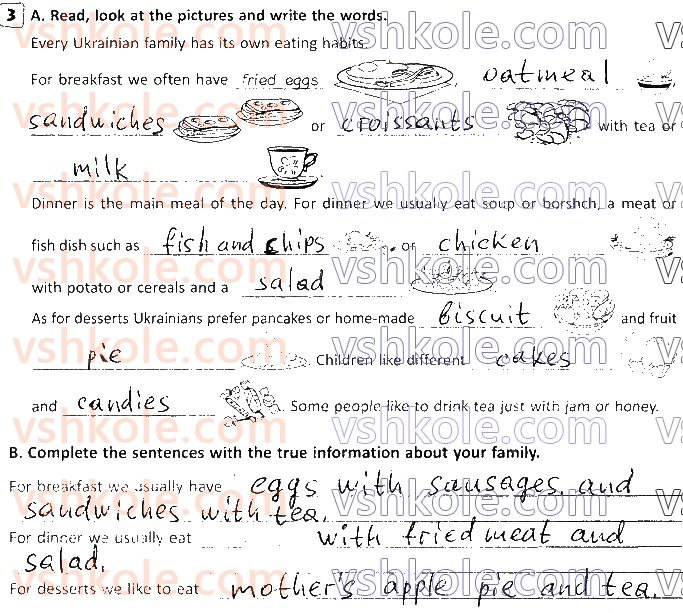 3 A. Read, look at the pictures and write the words.
Every Ukrainian family has its own eating habits.
For breakfast we often have fried eggs, oatmeal
sandwiches or croissants with tea or
milk.
Dinner is the main meal of the day. For dinner we usually eat soup or borshch, a meat or
fish dish such as fish and chips or chicken
with potato or cereals and a salad
As for desserts Ukrainians prefer pancakes or home-made biscuit and fruit
pie. Children like different cakes
and candies. Some people like to drink tea just with jam or honey.
B. Complete the sentences with the true information about your family.
For breakfast we usually have eggs with sausages, and
sandwiches with tea.
For dinner we usually eat with fried meat and
salad.
For desserts we like to eat mother's apple pie and tea.
vshkole.com